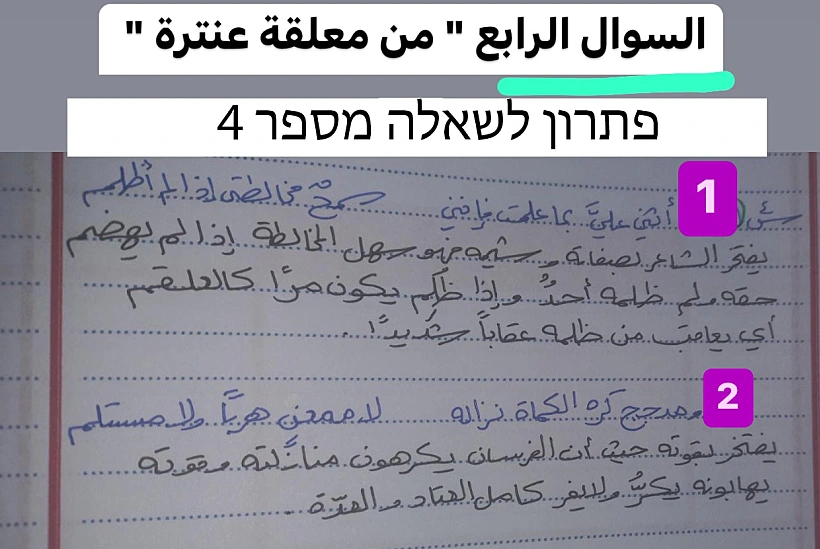 السوال الرابع " من معلقة عنترة "
פתרון לשאלה מספר 4
1
أثني عليَّ بما علمت فإنني سمحٌ مخالطتي إذا لم أظلم
يفتخر الشاعر بصفاته و شيمه فهو سهل المخالطة إذا لم يهضم
حقه ولم ظلمه أحدٌ وإذا ظُلِم يكون مرًّا كالعلقم
أي يعاقب من ظلمه عقاباً شديدًا.
2
ومدجج كره الكماة نزاله لا ممعنٍ هربًا ولا مستلم
يفتخر بقوته حيث أن الفرسان يكرهون منازلته وقوته
يهابونه يكرُّ ولا يفر كامل العتاد والعدّة.